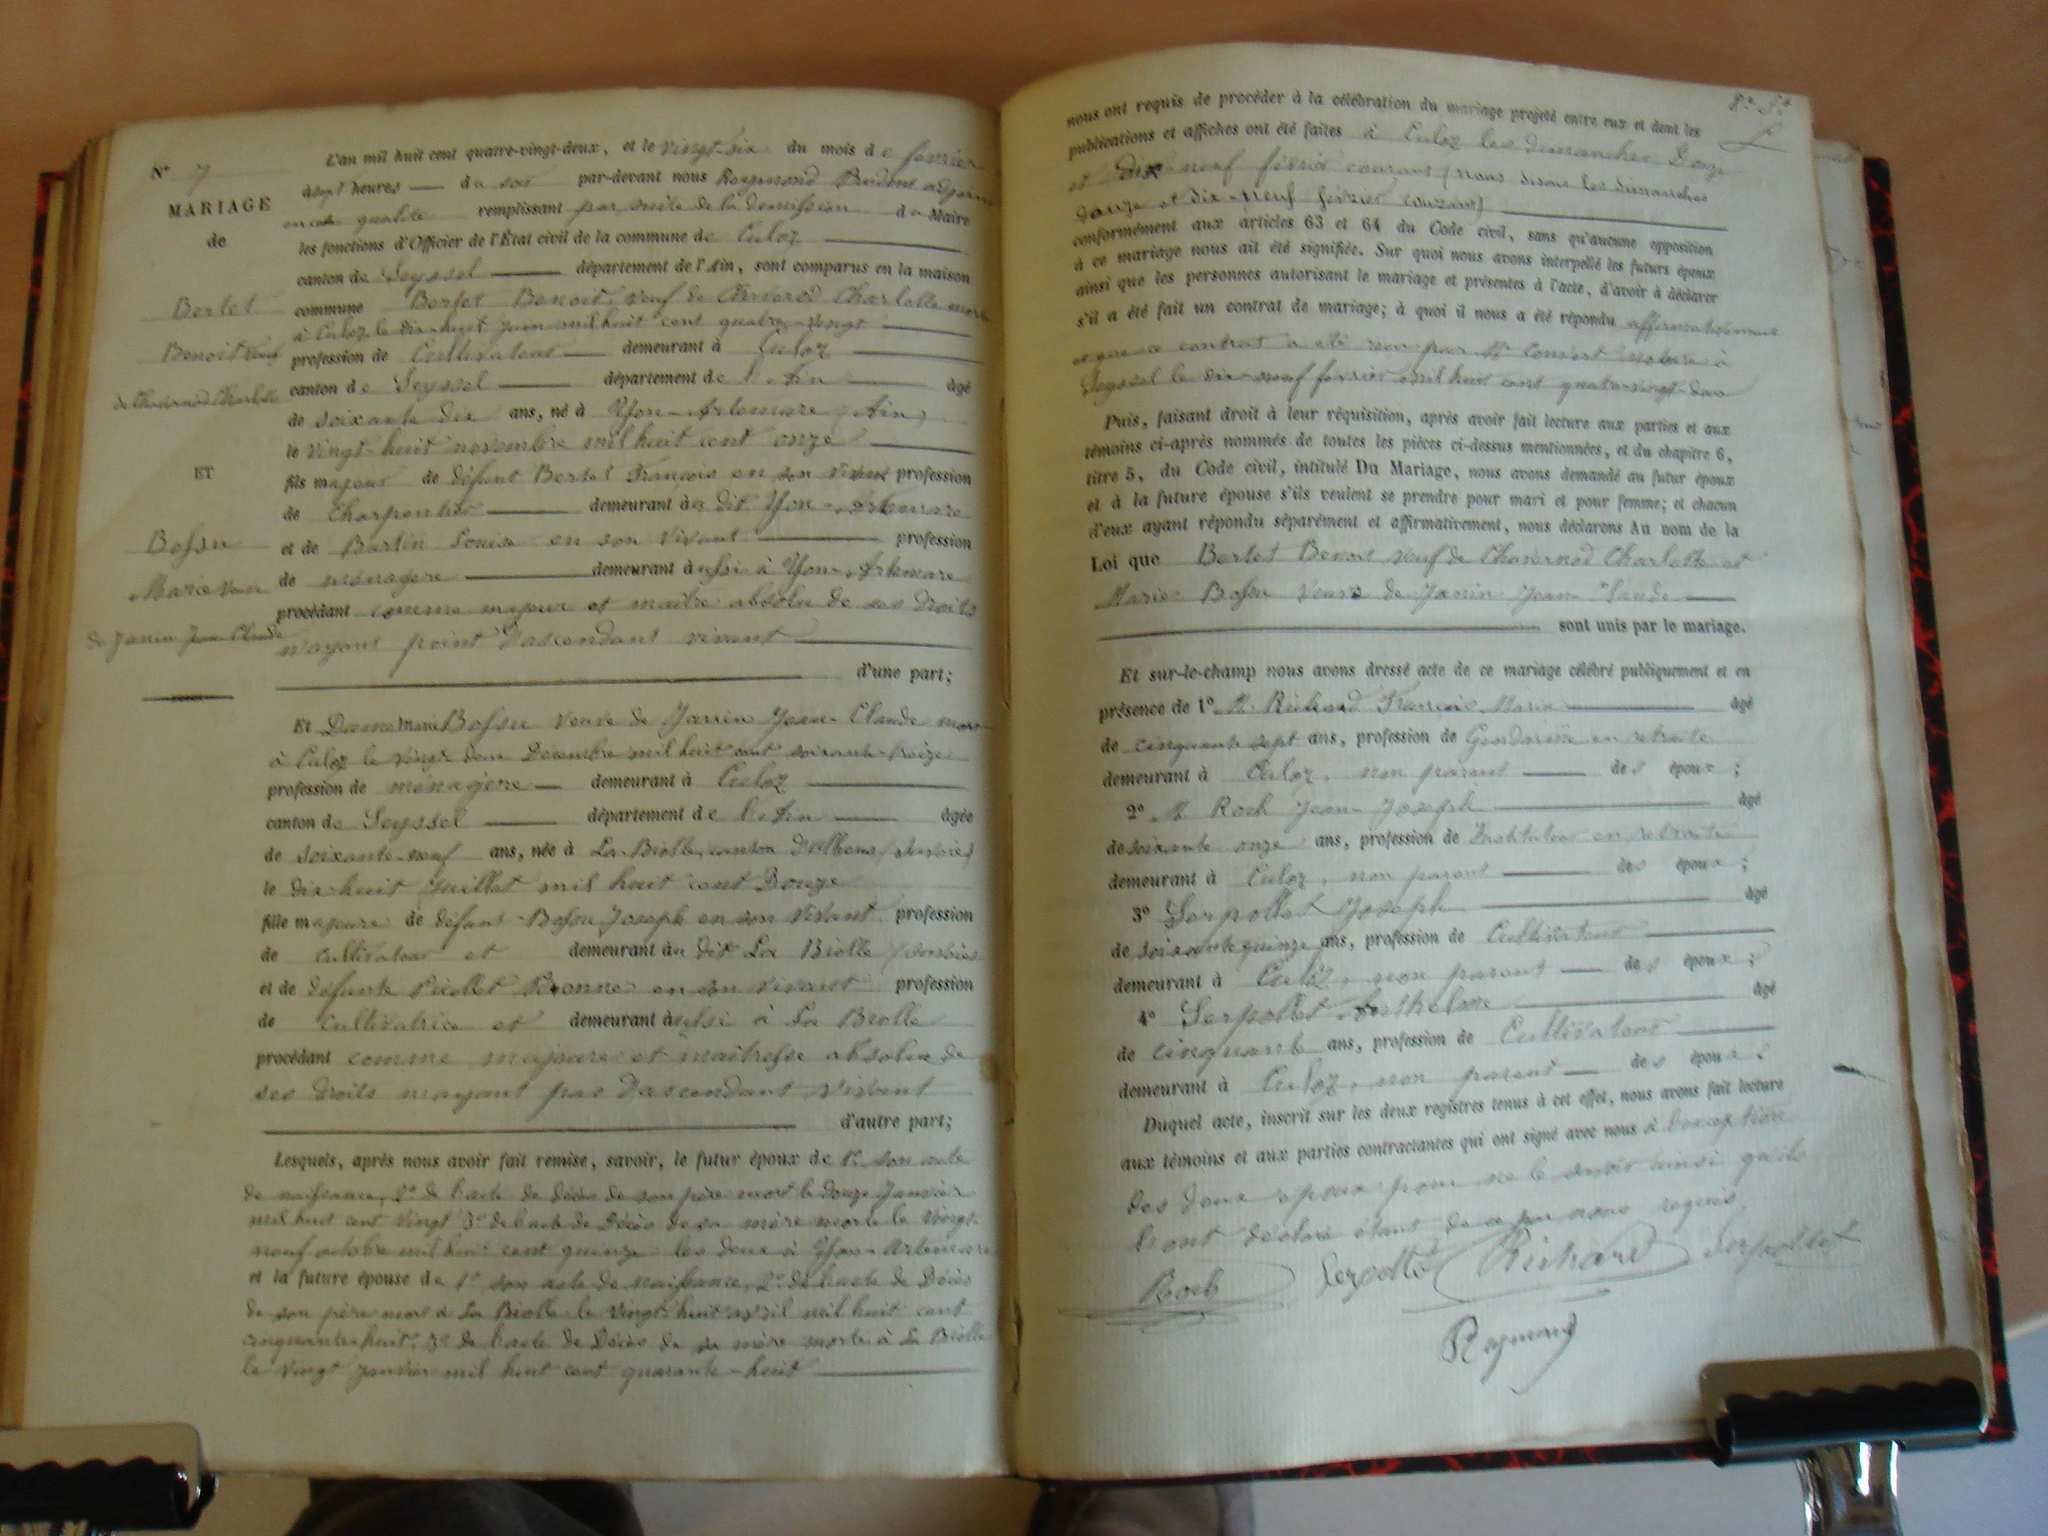 N° 7
MARIAGE
de
Bertet
Benoit veuf
de Chavernod Charlotte
ET
Bossu
Marie veuve
de Janin Jean-Claude
L'an mil huit cent quatre-vingt-deux, et le vingt-six du mois de février
à sept heures du soir par-devant nous Raymond adjoint
en cette qualité remplissant par suite de la démission du Maire
les fonctions d'Officier de l'État civil de la commune de Culoz
canton de Seyssel département de l'Ain, sont comparus en la maison
commune Bertet Benoit, veuf de Chavernod Charlotte morte
à Culoz le dix-sept juin mil huit cent quatre-vingt
profession de Cultivateur demeurant à Culoz
canton de Seyssel département de l'Ain âgé
de soixante dix ans, né à Yon-Artemare (Ain)
le vingt-huit novembre mil huit cent onze
fils majeur de défunt Bertet François en son vivant profession
de Charpentier demeurant au dit Yon-Artemare
et de Bertin Louise en son vivant profession
de ménagère demeurant aussi à Yon-Artemare
procédant comme majeur et maître absolu de ses droits
n'ayant point d'ascendant vivant
d'une part;
Et Dame Marie Bossu veuve de Janin Jean-Claude mort
à Culoz le vingt deux Décembre mil huit cent soixante-treize
profession de ménagère demeurant à Culoz
canton de Seyssel département de l'Ain âgée
de soixante-neuf ans, née à La Biolle, canton d'Albens (Savoie)
le dix-huit juillet mil huit cent Douze
fille majeure de défunt Bossu Joseph en son vivant profession
de cultivateur et demeurant au dit La Biolle (Savoie)
et de défunte Piollet en son vivant profession
de Cultivatrice et demeurant aussi à La Biolle
procédant comme majeure et maîtresse absolue de
ses droits n'ayant pas d'ascendant vivant
d'autre part;
Lesquels, après nous avoir fait remise, savoir, le futur époux de 1° son acte
de naissance, 2° de l'acte de décès de son père mort le douze Janvier
mil huit cent vingt 3° de l'acte de Décès de sa mère morte le vingt-
neuf octobre mil huit cent quinze les deux à Yon-Artemare
et la future épouse de 1° son acte de naissance, 2° de l'acte de Décès
de son père mort à La Biolle le vingt-huit avril mil huit cent
cinquante-huit, 3° de l'acte de Décès de sa mère morte à La Biolle
le vingt janvier mil huit cent quarante-huit
nous ont requis de procéder à la célébration du mariage projeté entre eux et dont les
publications et affiches ont été faites à Culoz les dimanches Douze
et dix neuf février courant (nous disons les dimanches
douze et dix-neuf février courant)
conformément aux articles 63 et 64 du Code civil, sans qu'aucune opposition
à ce mariage nous ait été signifiée. Sur quoi nous avons interpellé les futurs époux
ainsi que les personnes autorisant le mariage et présentes à l'acte, d'avoir à déclarer
s'il a été fait un contrat de mariage; à quoi il nous a été répondu affirmativement
et que ce contrat a été reçu par Me Convert notaire à
Seyssel le dix-neuf février mil huit cent quatre-vingt deux
Puis, faisant droit à leur réquisition, après avoir fait lecture aux parties et aux
témoins ci-après nommés de toutes les pièces ci-dessus mentionnées, et du chapitre 6,
titre 5, du Code civil, intitulé Du Mariage, nous avons demandé au futur époux
et à la future épouse s'ils veulent se prendre pour mari et pour femme; et chacun
d'eux ayant répondu séparément et affirmativement, nous déclarons Au nom de la
Loi que Bertet Benoit veuf de Chavernod Charlotte et
Marie Bossu veuve de Janin Jean-Claude
sont unis par le mariage.
Et sur-le-champ nous avons dressé acte de ce mariage célébré publiquement et en
présence de 1° M. Richard François Marie âgé
de cinquante sept ans, profession de Gendarme en retraite
demeurant à Culoz, non parent des époux;
2° M. Roch Jean-Joseph âgé
de soixante onze ans, profession de Instituteur en retraite
demeurant à Culoz, non parent des époux;
3° Serpollet Joseph âgé
de soixante quinze ans, profession de Cultivateur
demeurant à Culoz, non parent des époux;
4° Serpollet Anthelme âgé
de cinquante ans, profession de Cultivateur
demeurant à Culoz, non parent des époux.
Duquel acte, inscrit sur les deux registres tenus à cet effet, nous avons fait lecture
aux témoins et aux parties contractantes qui ont signé avec nous à l'exception
des deux époux pour ne le savoir ainsi qu'ils
l'ont déclaré étant de ce par nous requis.
Roch Serpollet Richard Serpollet
Raymond